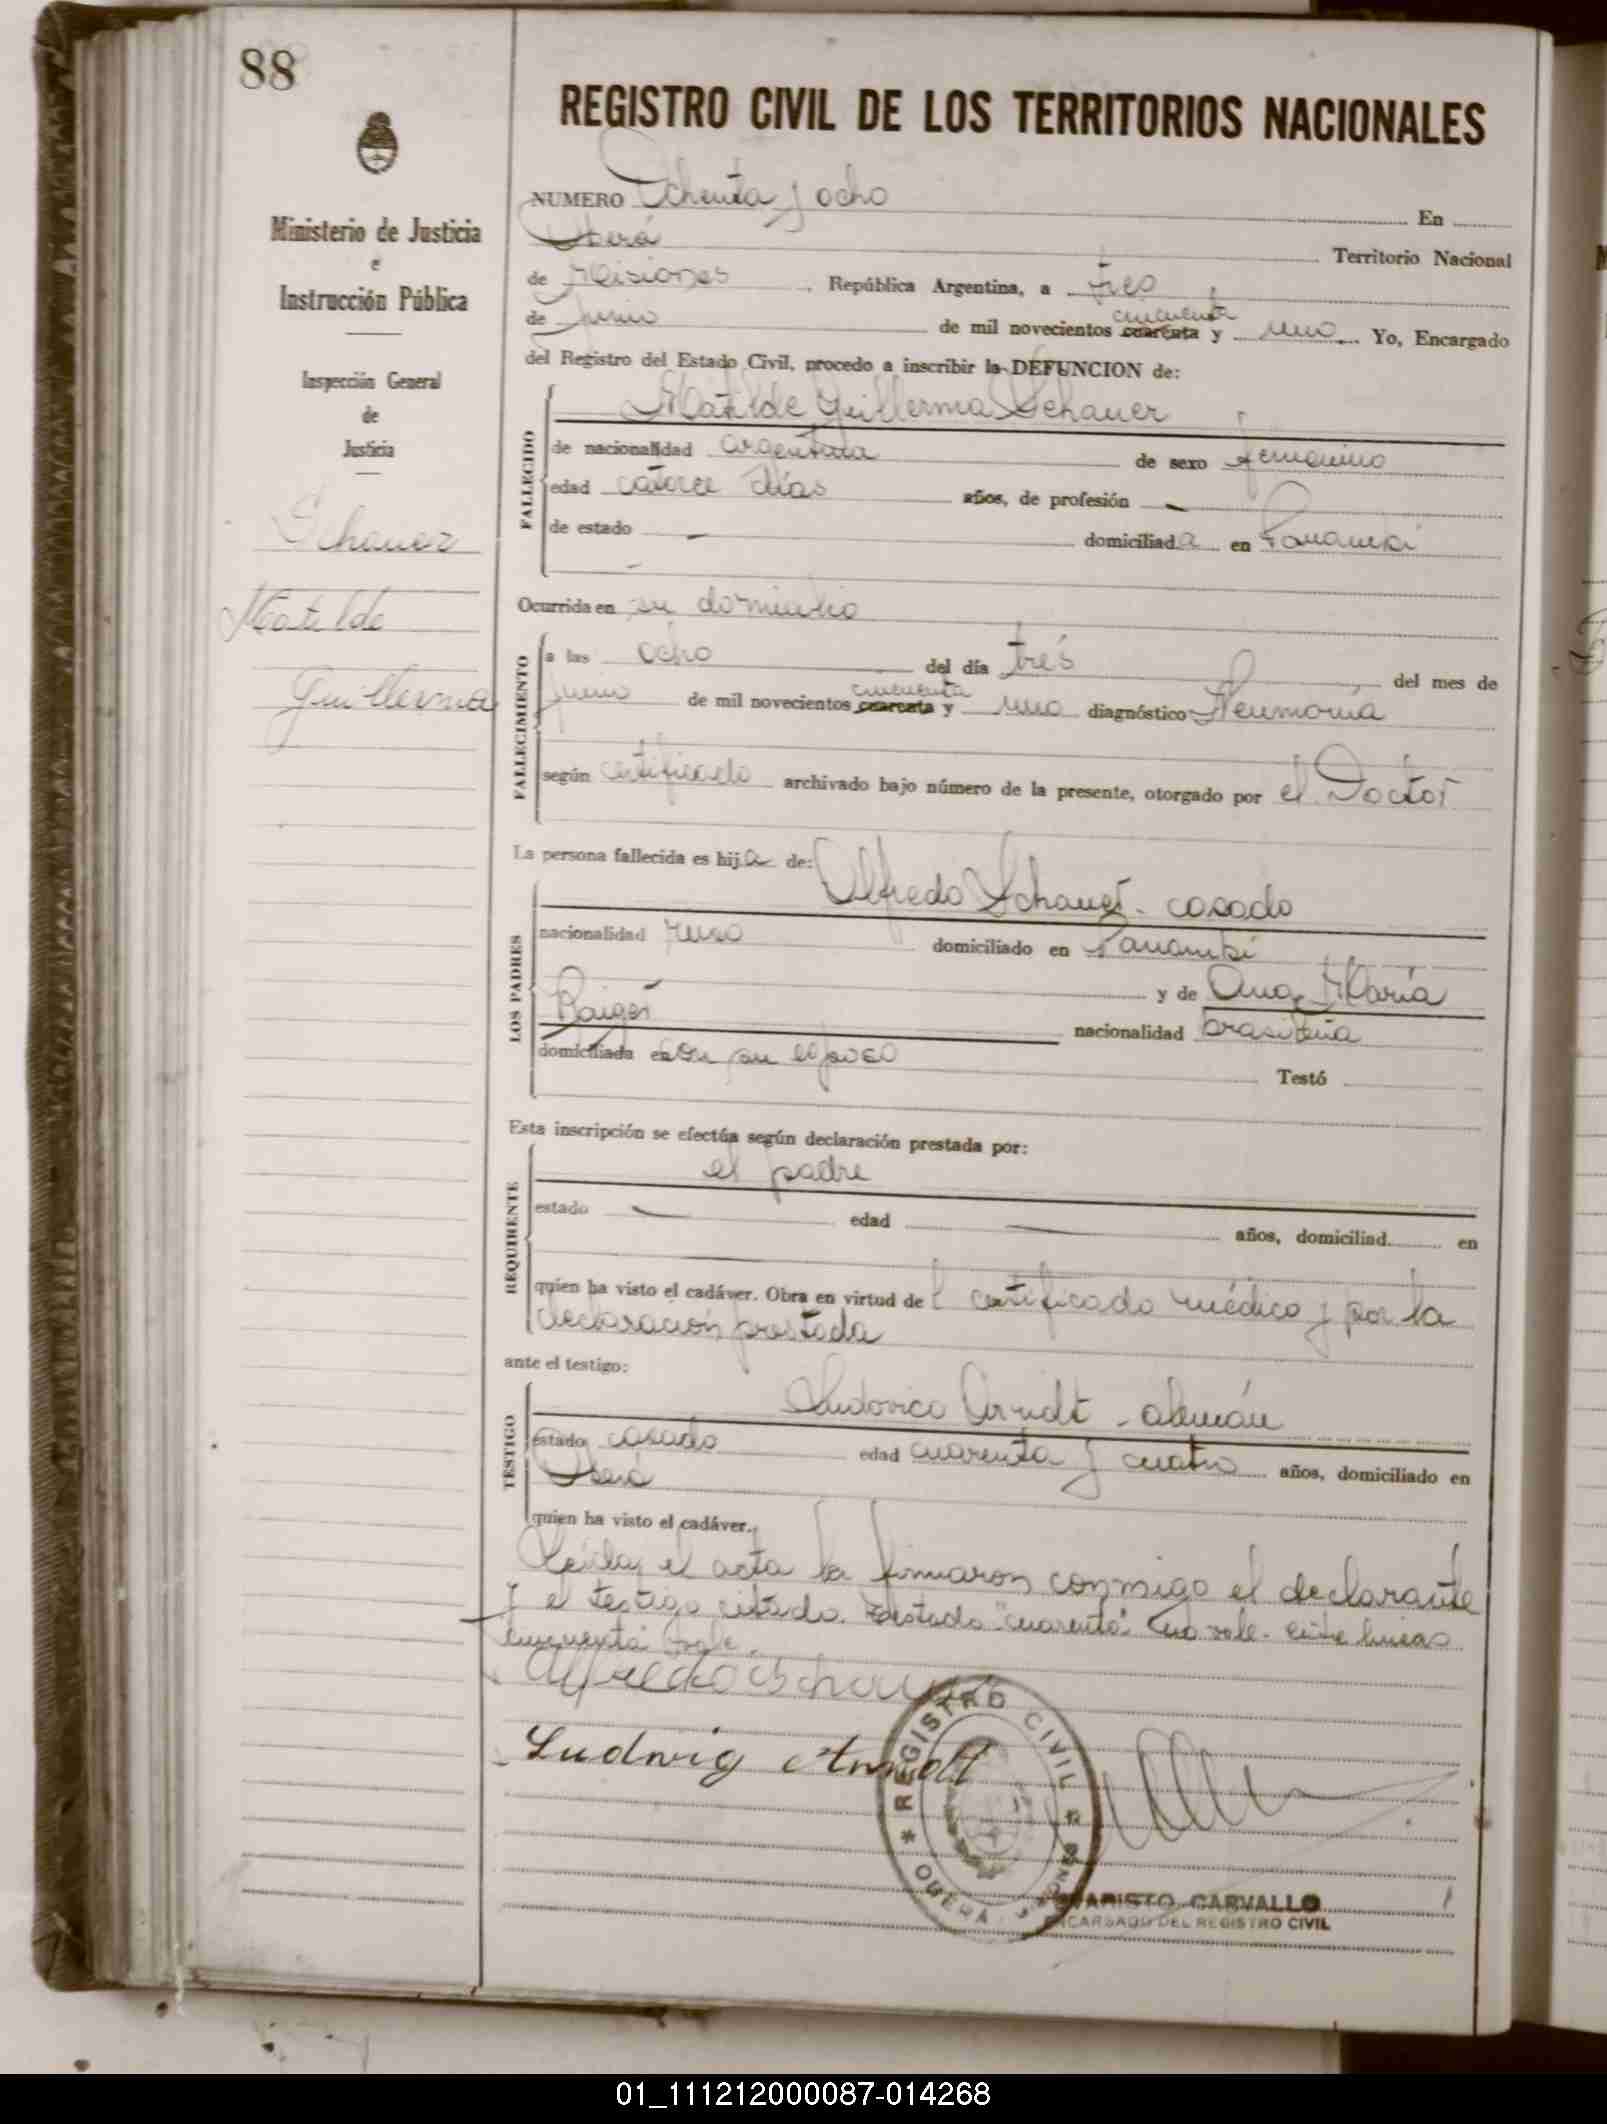 88
REGISTRO CIVIL DE LOS TERRITORIOS NACIONALES
Ministerio de Justicia
e
Instrucción Pública
Inspección General
de
Justicia
Schauer
Matilde
Guillerma
NUMERO Ochenta y ocho En
Oberá Territorio Nacional
de Misiones, República Argentina, a tres
de junio de mil novecientos cuarenta cincuenta y uno. Yo, Encargado
del Registro del Estado Civil, procedo a inscribir la DEFUNCION de:
FALLECIDO
Matilde Guillerma Schauer
de nacionalidad argentina de sexo femenino
edad catorce días años, de profesión —
de estado — domiciliada en Panambí
Ocurrida en su domicilio
FALLECIMIENTO
a las ocho del día tres del mes de
junio de mil novecientos cuarenta cincuenta y uno diagnóstico Neumonía
según certificado archivado bajo número de la presente, otorgado por el Doctor
La persona fallecida es hija de:
LOS PADRES
Alfredo Schauer - casado
nacionalidad ruso domiciliado en Panambí
y de Ana María
Raiger nacionalidad brasileña
domiciliada en con su esposo
Testó
Esta inscripción se efectúa según declaración prestada por:
REQUIRENTE
el padre
estado — edad — años, domiciliad en
quien ha visto el cadáver. Obra en virtud del certificado médico y por la
declaración prestada
ante el testigo:
TESTIGO
Ludovico Arndt - alemán
estado casado edad cuarenta y cuatro años, domiciliado en
Oberá
quien ha visto el cadáver.
Leída el acta la firmaron conmigo el declarante
y el testigo citado. Testado "cuarenta" no vale. entre lineas
cincuenta vale.
Alfredo Schauer
Ludwig Arndt
REGISTRO CIVIL
OBERA MISIONES
EVARISTO CARVALLO
ENCARGADO DEL REGISTRO CIVIL
01_111212000087-014268